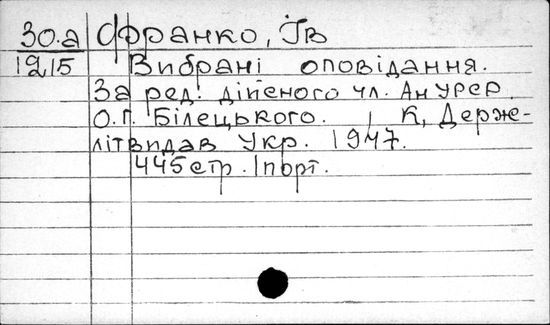 30.а Франко, Ів
1215 Вибрані оповідання.
За ред. дійсного чл. Ан УРСР
О.П. Білецького. К, Держ-
літвидав Укр. 1947.
445стр. 1порт.